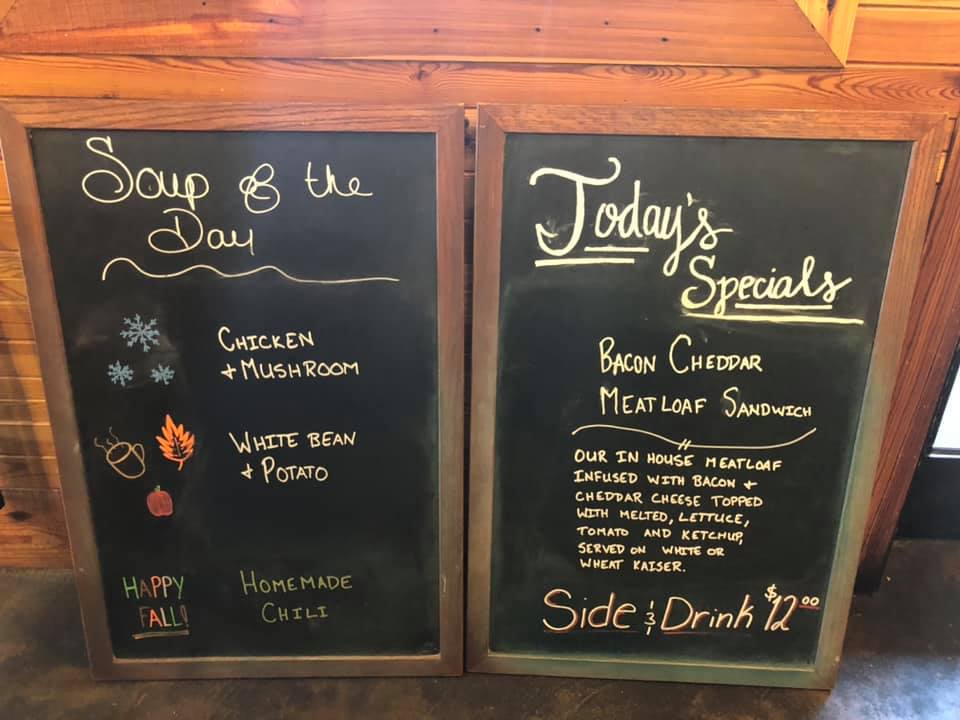 Soup of the
Day
CHICKEN
+ MUSHROOM
WHITE BEAN
+ POTATO
HAPPY
FALL!
HOMEMADE
CHILI
Today's
Specials
BACON CHEDDAR
MEATLOAF SANDWICH
OUR IN HOUSE MEATLOAF
INFUSED WITH BACON +
CHEDDAR CHEESE TOPPED
WITH MELTED, LETTUCE,
TOMATO AND KETCHUP,
SERVED ON WHITE OR
WHEAT KAISER.
Side & Drink $12.00